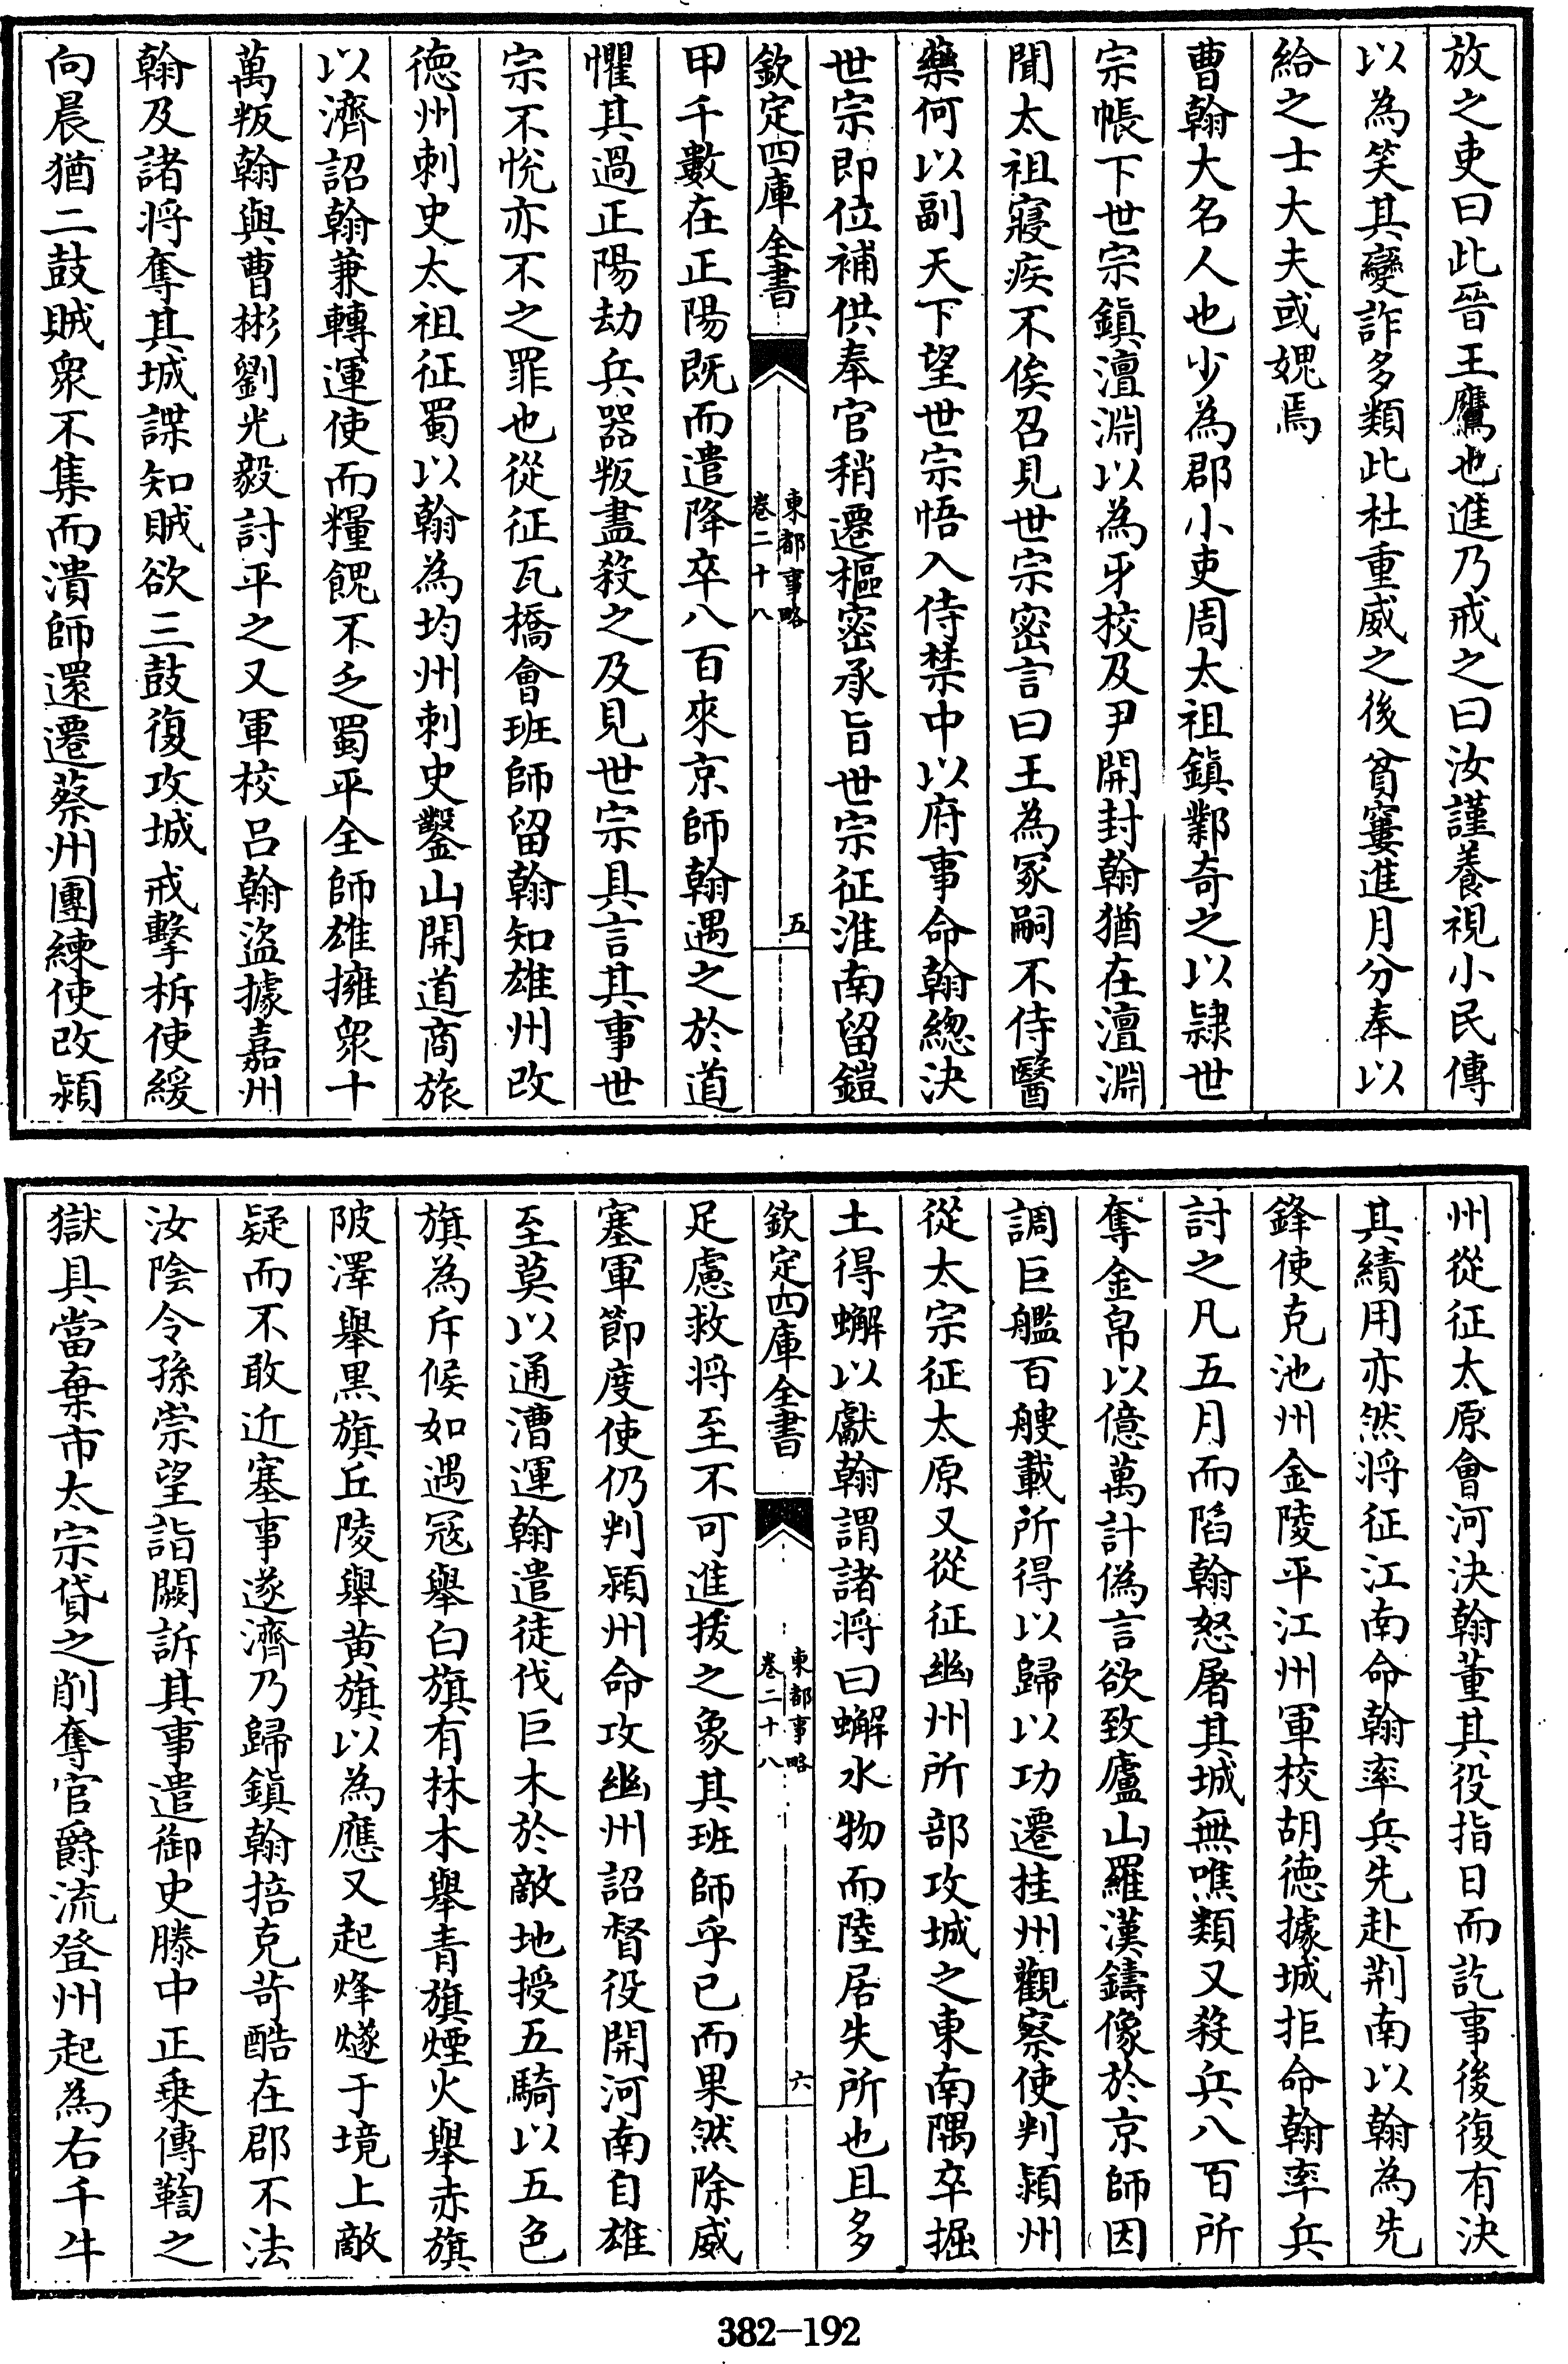 放之吏曰此晉王鷹也進乃戒之曰汝謹養視小民傳
以為笑其變詐多類此杜重威之後貧窶進月分奉以
給之士大夫或媿焉
曹翰大名人也少為郡小吏周太祖鎮鄴奇之以隷世
宗帳下世宗鎮澶淵以為牙校及尹開封翰猶在澶淵
聞太祖寢疾不俟召見世宗密言曰王為冢嗣不侍醫
藥何以副天下望世宗悟入侍禁中以府事命翰總決
世宗即位補供奉官稍遷樞密承旨世宗征淮南留鎧
欽定四庫全書
東都事略
卷二十八
五
甲千數在正陽既而遣降卒八百來京師翰遇之於道
懼其過正陽劫兵器叛盡殺之及見世宗具言其事世
宗不悅亦不之罪也從征瓦橋會班師留翰知雄州改
德州刺史太祖征蜀以翰為均州刺史鑿山開道商旅
以濟詔翰兼轉運使而糧餽不乏蜀平全師雄擁衆十
萬叛翰與曹彬劉光毅討平之又軍校呂翰盜據嘉州
翰及諸将奪其城諜知賊欲三鼓復攻城戒擊柝使緩
向晨猶二鼓賊衆不集而潰師還遷蔡州團練使改潁
州從征太原會河決翰董其役指日而訖事後復有決
其績用亦然将征江南命翰率兵先赴荆南以翰為先
鋒使克池州金陵平江州軍校胡德據城拒命翰率兵
討之凡五月而陷翰怒屠其城無噍類又殺兵八百所
奪金帛以億萬計偽言欲致廬山羅漢鑄像於京師因
調巨艦百艘載所得以歸以功遷桂州觀察使判潁州
從太宗征太原又從征幽州所部攻城之東南隅卒掘
土得蠏以獻翰謂諸将曰蠏水物而陸居失所也且多
欽定四庫全書
東都事略
卷二十八
六
足慮救将至不可進拔之象其班師乎已而果然除威
塞軍節度使仍判潁州命攻幽州詔督役開河南自雄
至莫以通漕運翰遣徒伐巨木於敵地授五騎以五色
旗為斥候如遇冦舉白旗有林木舉青旗煙火舉赤旗
陂澤舉黒旗丘陵舉黄旗以為應又起烽燧于境上敵
疑而不敢近塞事遂濟乃歸鎮翰掊克苛酷在郡不法
汝陰令孫崇望詣闕訴其事遣御史滕中正乗傳鞫之
獄具當棄市太宗貸之削奪官爵流登州起為右千牛
382-192